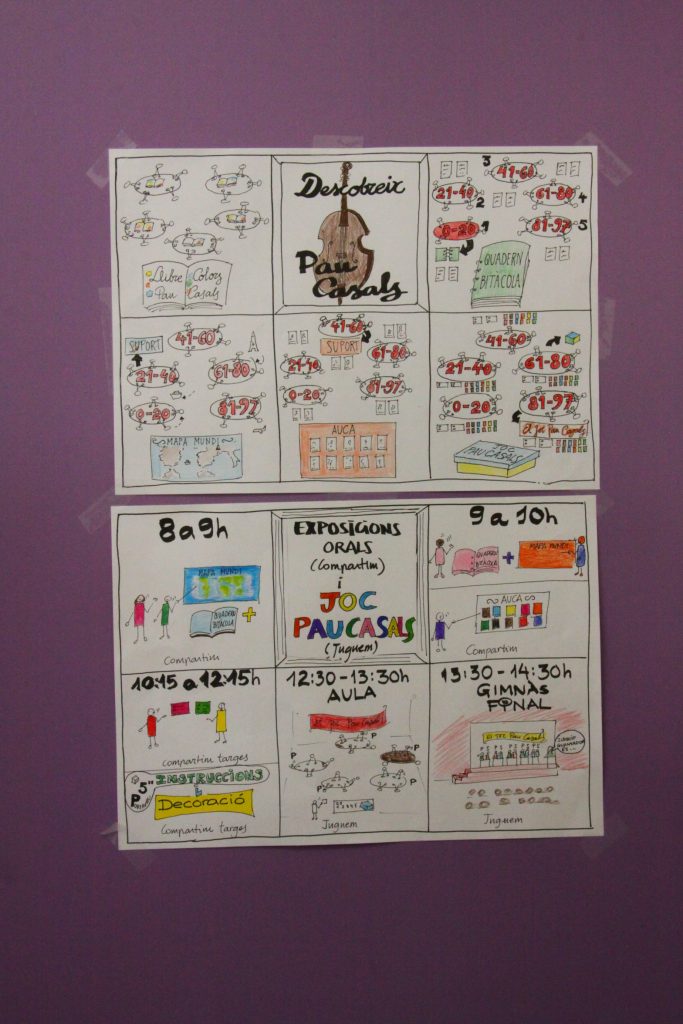 Llibre Colors
Pau Casals
Descobreix
Pau
Casals
3
41-60
21-40
2
61-80
4
0-20
1
81-97
5
QUADERN
BITÀCOLA
SUPORT
41-60
21-40
61-80
0-20
81-97
MAPA MUNDI
41-60
SUPORT
61-80
21-40
81-97
0-20
AUCA
41-60
21-40
61-80
0-20
81-97
El Joc Pau Casals
JOC
PAU CASALS
8 a 9h
MAPA MUNDI
QUADERN
BITÀCOLA
+
Compartim
EXPOSICIONS
ORALS
(Compartim)
i
JOC
PAU CASALS
(Juguem)
9 a 10h
QUADERN
BITÀCOLA
+
MAPA MUNDI
AUCA
Compartim
10:15 a 12:15h
compartim targes
INSTRUCCIONS
Decoració
Compartim targes
12:30-13:30h
AULA
EL JOC Pau Casals
P
P
P
P
P
Juguem
13:30-14:30h
GIMNÀS
FINAL
El JOC Pau Casals
P5 P5 P5 P5 P5
Juguem